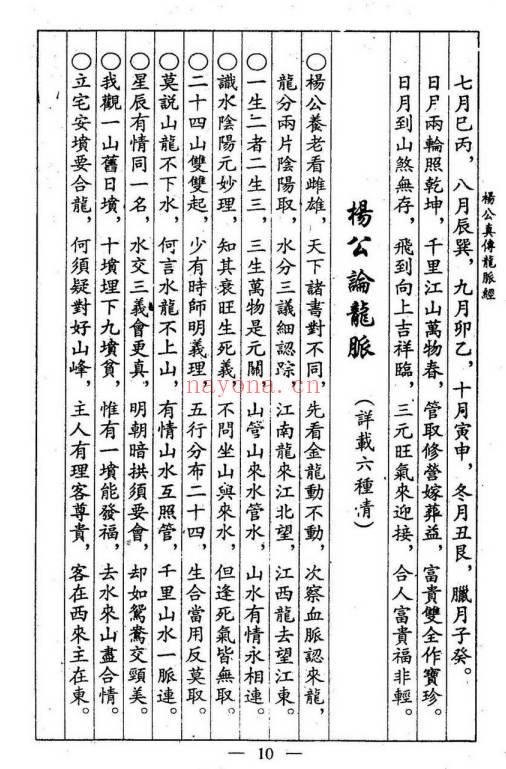 楊公真傳龍脈經
七月巳丙，八月辰巽，九月卯乙，十月寅申，冬月丑艮，臘月子癸。
日月兩輪照乾坤，千里江山萬物春，管取修營嫁葬益，富貴雙全作寶珍。
日月到山煞無存，飛到向上吉祥臨，三元旺氣來迎接，合人富貴福非輕。
楊公論龍脈（詳載六種情）
○楊公養老看雌雄，天下諸書對不同，先看金龍動不動，次察血脈認來龍，
龍分兩片陰陽取，水分三議細認踪，江南龍來江北望，江西龍去望江東。
○一生二者二生三，三生萬物是元關，山管山來水管水，山水有情永相連。
○識水陰陽元妙理，知其衰旺生死義，不問坐山與來水，但逢死氣皆無取。
○二十四山雙雙起，少有時師明義理，五行分布二十四，生合當用反莫取。
○莫説山龍不下水，何言水龍不上山，有情山水互照管，千里山水一脈連。
○星辰有情同一名，水交三義會更真，明朝暗拱須要會，却如鴛鴦交頸美。
○我觀一山舊日墳，十墳埋下九墳貧，惟有一墳能發福，去水來山盡合情。
○立宅安墳要合龍，何須疑對好山峰，主人有理客尊貴，客在西來主在東。
nayona.cn
— 10 —